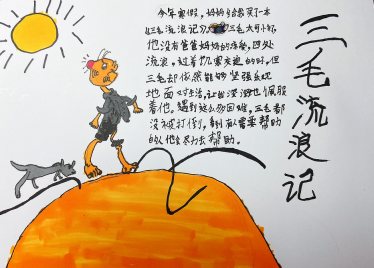 三毛流浪记
今年寒假,妈妈给我买了一本
《三毛流浪记》,三毛太可怜了,
他没有爸爸妈妈的疼爱,四处
流浪,过着饥寒交迫的
三毛却依然能够坚强乐观
地面对生活,让我深深地佩服
着他。遇到这么多困难,三毛都
没被打倒,看到有人需要帮助
的人他会尽力去帮助。